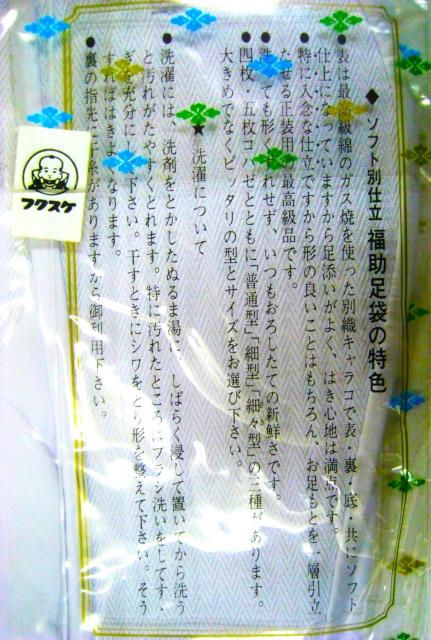 ◆ ソフト別仕立 福助足袋の特色
● 表は最高級綿のガス焼を使った別織キャラコで表・裏・底・共にソフト
仕上になっていますから足添いがよく、はき心地は満点です。
● 特に入念な仕立ですから形の良いことはもちろん、お足もとを一層引立
たせる正装用の最高級品です。
● 洗っても形くずれせず、いつもおろしたての新鮮さです。
● 四枚・五枚コハゼとともに「普通型」「細型」「細々型」の三種があります。
大きめでなくピッタリの型とサイズをお選び下さい。
★ 洗濯について
● 洗濯には、洗剤をとかしたぬるま湯に、しばらく浸して置いてから洗う
と汚れがたやすくとれます。特に汚れたところはブラシ洗いをしてすす
ぎを充分にして下さい。干すときにシワをとり形を整えて下さい。そう
すればはきよくなります。
● 裏の指先に糸がありますから御利用下さい。
フクスケ